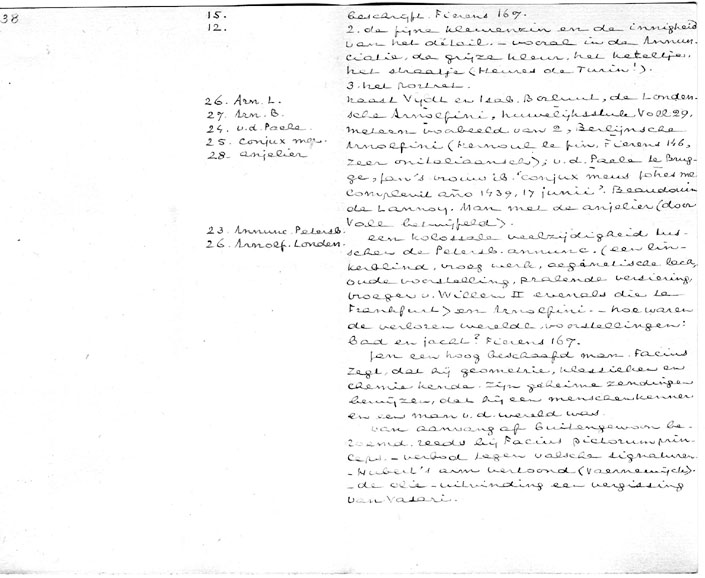 38
15. beschrijft. Fierens 167.
12. 2. de fijne kleurenzin en de innigheid
van het détail. - vooral in de Annun-
ciatie, de grijze kleur, het keteltje,
het straatje (Heures de Turin!).
3. het portret.
26. Arn. L. naast Vydt en Isab. Borluut, de Londen-
27. Arn. B. sche Arnolfini, huwelijksstuk Voll 29,
24. v.d. Paele. meteen voorbeeld van 2, Berlijnsche
25. conjux meus. Arnolfini (Hernoul le fin, Fierens 146,
28. anjelier zeer onitaliaansch); v.d. Paele te Brug-
ge, Jan's vrouw ib. "conjux meus Johes me
complevit año 1439, 17 junii". Beaudouin
de Lannoy. Man met de anjelier (door
Voll betwijfeld).
23. Annunc. Petersb. een kolossale veelzijdigheid tus-
26. Arnolf. Londen. schen de Petersb. annunc. (een lin-
kerblind, vroeg werk, aeginetische lach,
oude voorstelling, pralende versiering,
vroeger v. Willem II evenals die te
Frankfurt) en Arnolfini. - hoe waren
de verloren wereldl. voorstellingen:
Bad en jacht? Fierens 167.
Jan een hoog beschaafd man. Facius
zegt, dat hij geometrie, klassieken en
chemie kende. zijn geheime zendingen
bewijzen, dat hij een menschenkenner
en een man v.d. wereld was.
van aanvang af buitengewoon be-
roemd. reeds bij Facius pictorum prin-
ceps. - verbod tegen valsche signaturen.
- Hubert's arm vertoond (Vaernewijck).
- de olie-uitvinding een vergissing
van Vasari.